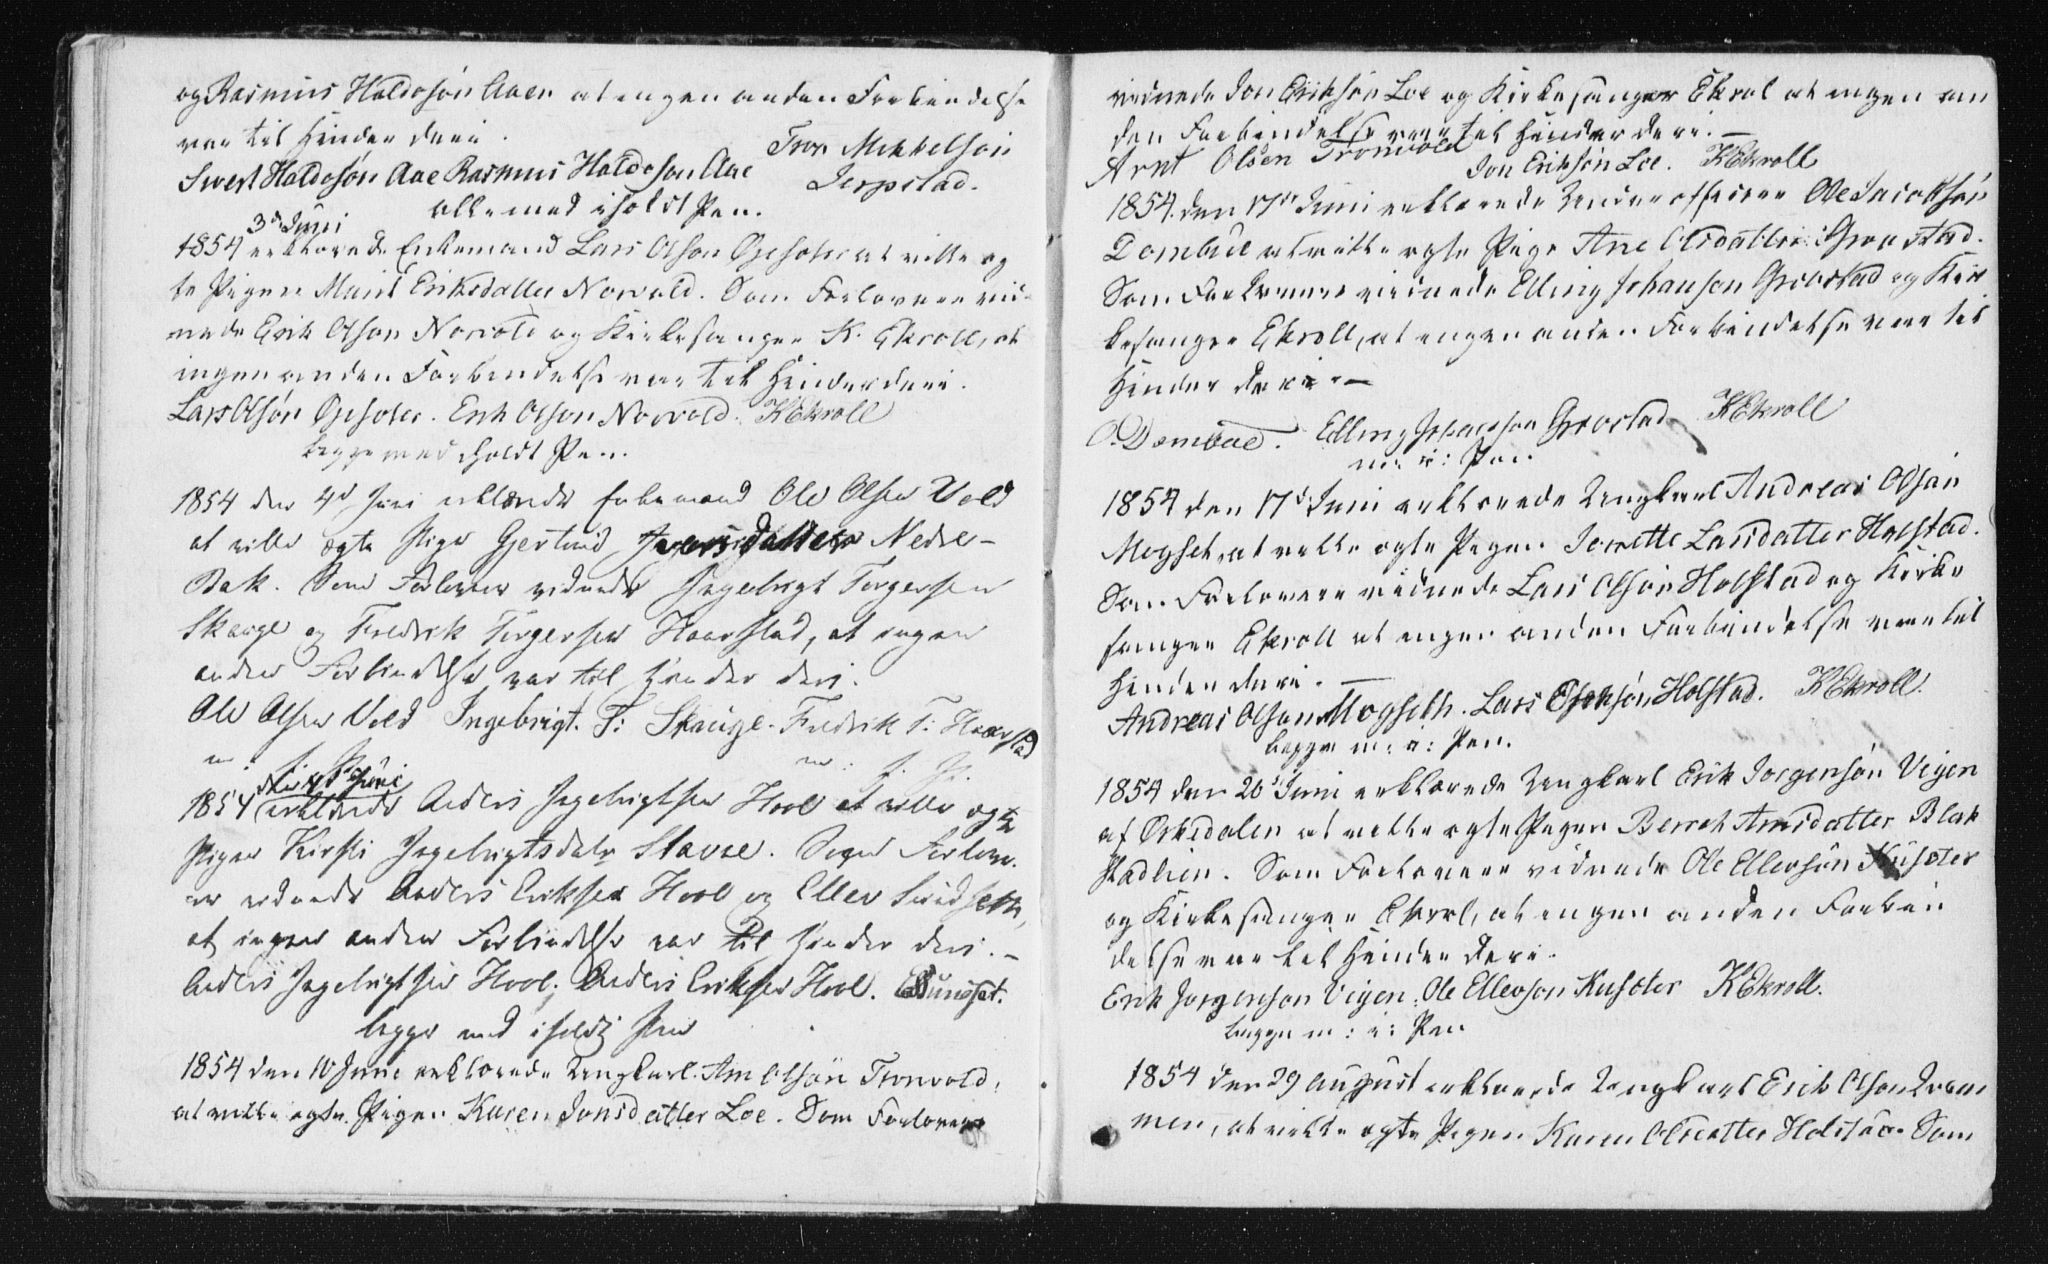 og Rasmus Haldosøn Aaen at ingen anden Forbindelse
var til Hinder deri.
Tron Mikkelson
Sivert Haldosøn Aae Rasmus Haldoson Aae Jerpstad.
alle med iholdt Pen.
3d Juni
1854 erklærede Enkemand Lars Olson at ville æg
te Pigen Marit Eriksdatter Norvold. Som Forlovere vid
nede Erik Olson Norvold og Kirkesanger K. Ekroll, at
ingen anden Forbindelse var til Hinder deri.
Lars Olsøn Erik Olson Norvold. KEkroll
begge med iholdt Pen.
1854 den 4d Juni erklærede Enkemand Ole Olsen Vold
at ville ægte Pige Gjertrud Nedre-
Bak. Som Forlovere vidnede Ingebrigt Torgersen
Skauge og Fredrik Torgersen Haarstad, at ingen
anden Forbindelse var til Hinder deri.
Ole Olsen Vold Ingebrigt. T: Skauge. Fredrik T: Haarstad
den 4d Juni
1854 erklærede Anders Ingebrigtsen Hool at ville ægte
Pigen Kirsti Ingebrigtsdatr Stavne. Som Forlove-
re vidnede Anders Eriksen Hool og Ellev Sundseth,
at ingen anden Forbindelse var til Hinder deri. -
Anders Ingebrigtsen Hool; Anders Eriksen Hool. ESundset.
begge med iholdt Pen
1854 den 10 Juni erklærede Ungkarl Arn Olsøn Tronvold,
at ville ægte Pigen Karen Jonsdatter Loe. Som Forlovere
vidnede Jon Eriksøn Loe og Kirkesanger Ekrol at ingen an
den Forbindelse var til Hinder deri. -
Arnt Olsen Tronvold Jon Eriksøn Loe. KEkroll
1854. den 17de Juni erklærede Underofficeer Ole Jacobsøn
Dombue at ville ægte Pige Ane Olsdatter Grostad.
Som Forlovere vidnede Elling Johanson Grostad og Kir
kesanger Ekroll, at ingen anden Forbindelse var til
Hinder deri. -
O. Dombue. Elling Johanson Grostad KEkroll
m: i: Pen.
1854 den 17d Juni erklærede Ungkarl Andreas Olsøn
Mogset, at ville ægte Pigen Jonette Larsdatter Holstad.
Som Forlovere vidnede Lars Olsøn Holstad og Kirke
sanger Ekroll at ingen anden Forbindelse var til
Hinder deri. -
Andreas Olson Mogseth. Lars Holstad. KEkroll.
begge m: i: Pen.
1854 den 20d Juni erklærede Ungkarl Erik Jorgensøn Vigen
af Orkedalen at ville ægte Pigen Berret Arnsdatter Blok
stadlien. Som Forlovere vidnede Ole Ellevsøn Kusæter
og Kirkesanger Ekrol, at ingen anden Forbin
delse var til Hinder deri.
Erik Jorgenson Vigen. Ole Ellevson Kusæter KEkroll.
begge m: i: Pen
1854 den 29 august erklærede Ungkarl Erik Olson Qvam
men, at ville ægte Pigen Karen Olsdatter Holstad. Som